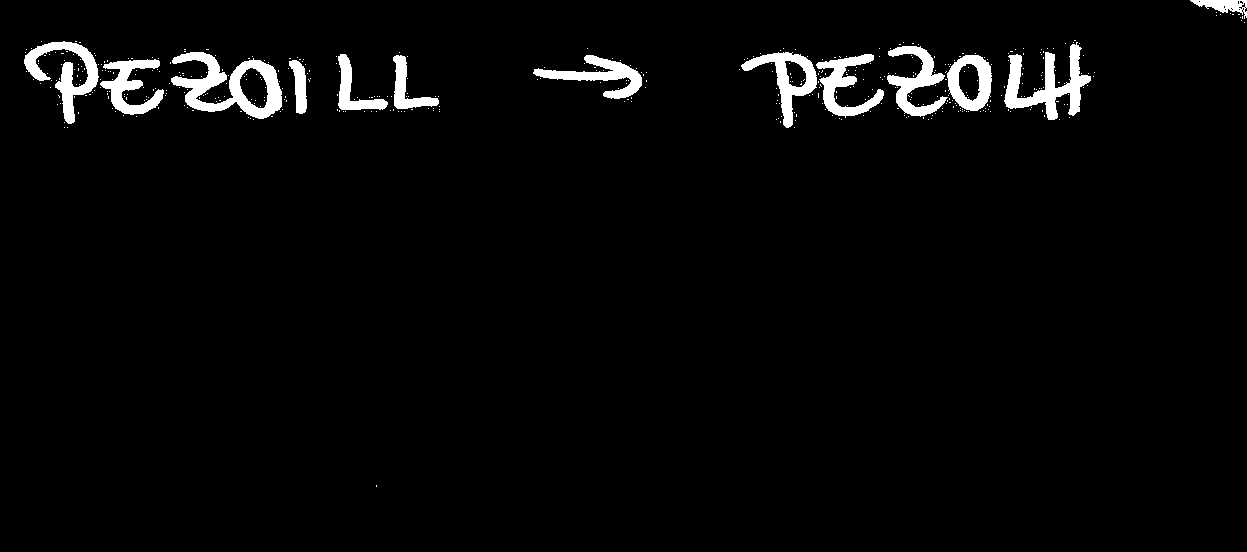 PEZOILL → PEZOLH